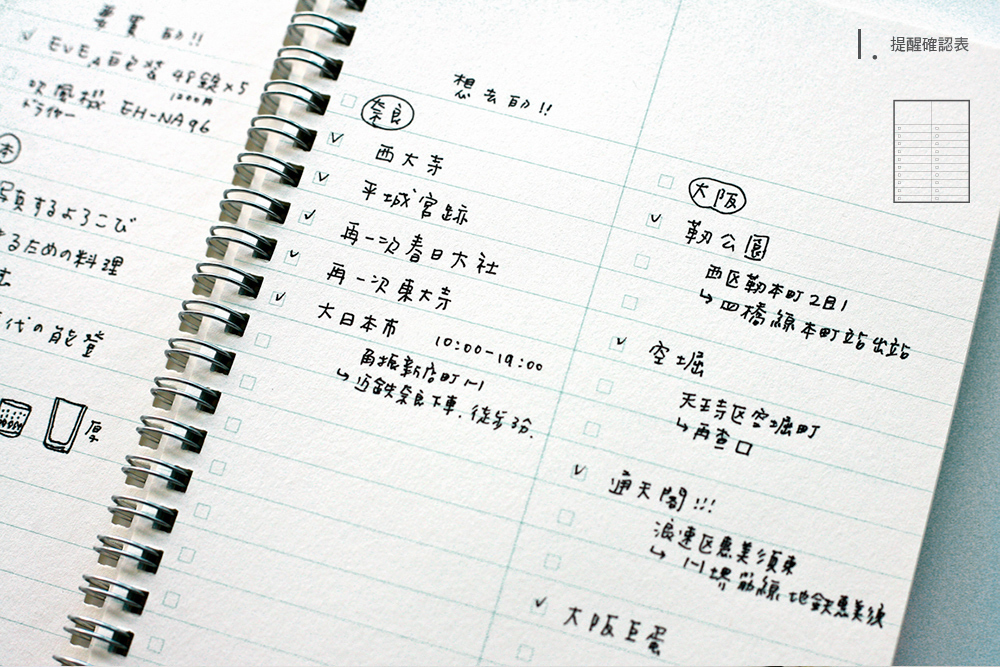 要買的!!
EVE A 百包裝 48錠×5
1200円
吹風機 EH-NA96
ドライヤー
本
写真するよろこび
きるための料理
代の能登
厚
想去的!!
奈良
西大寺
平城宮跡
再一次春日大社
再一次東大寺
大日本市 10:00-19:00
角振新店町1-1
近鉄奈良下車.徒歩3分.
大阪
靱公園
西区靱本町2目1
↳四橋線本町站出站
空堀
天王寺区空堀町
↳再查口
通天閣!!!
浪速区恵美須東
↳1-1 堺筋線地鉄恵美須
大阪巨蛋
1. 提醒確認表